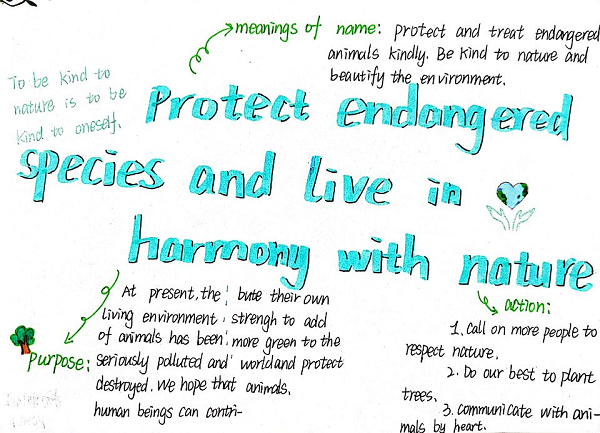 meanings of name: protect and treat endangered
animals kindly. Be kind to nature and
beautify the environment.
To be kind to
nature is to be
kind to oneself.
Protect endangered
species and live in
harmony with nature
purpose:
At present, the
living environment
of animals has been
seriously polluted and
destroyed. We hope that
human beings can contri-
bute their own
strengh to add
more green to the
world and protect
animals.
action:
1. Call on more people to
respect nature.
2. Do our best to plant
trees.
3. communicate with ani-
mals by heart.